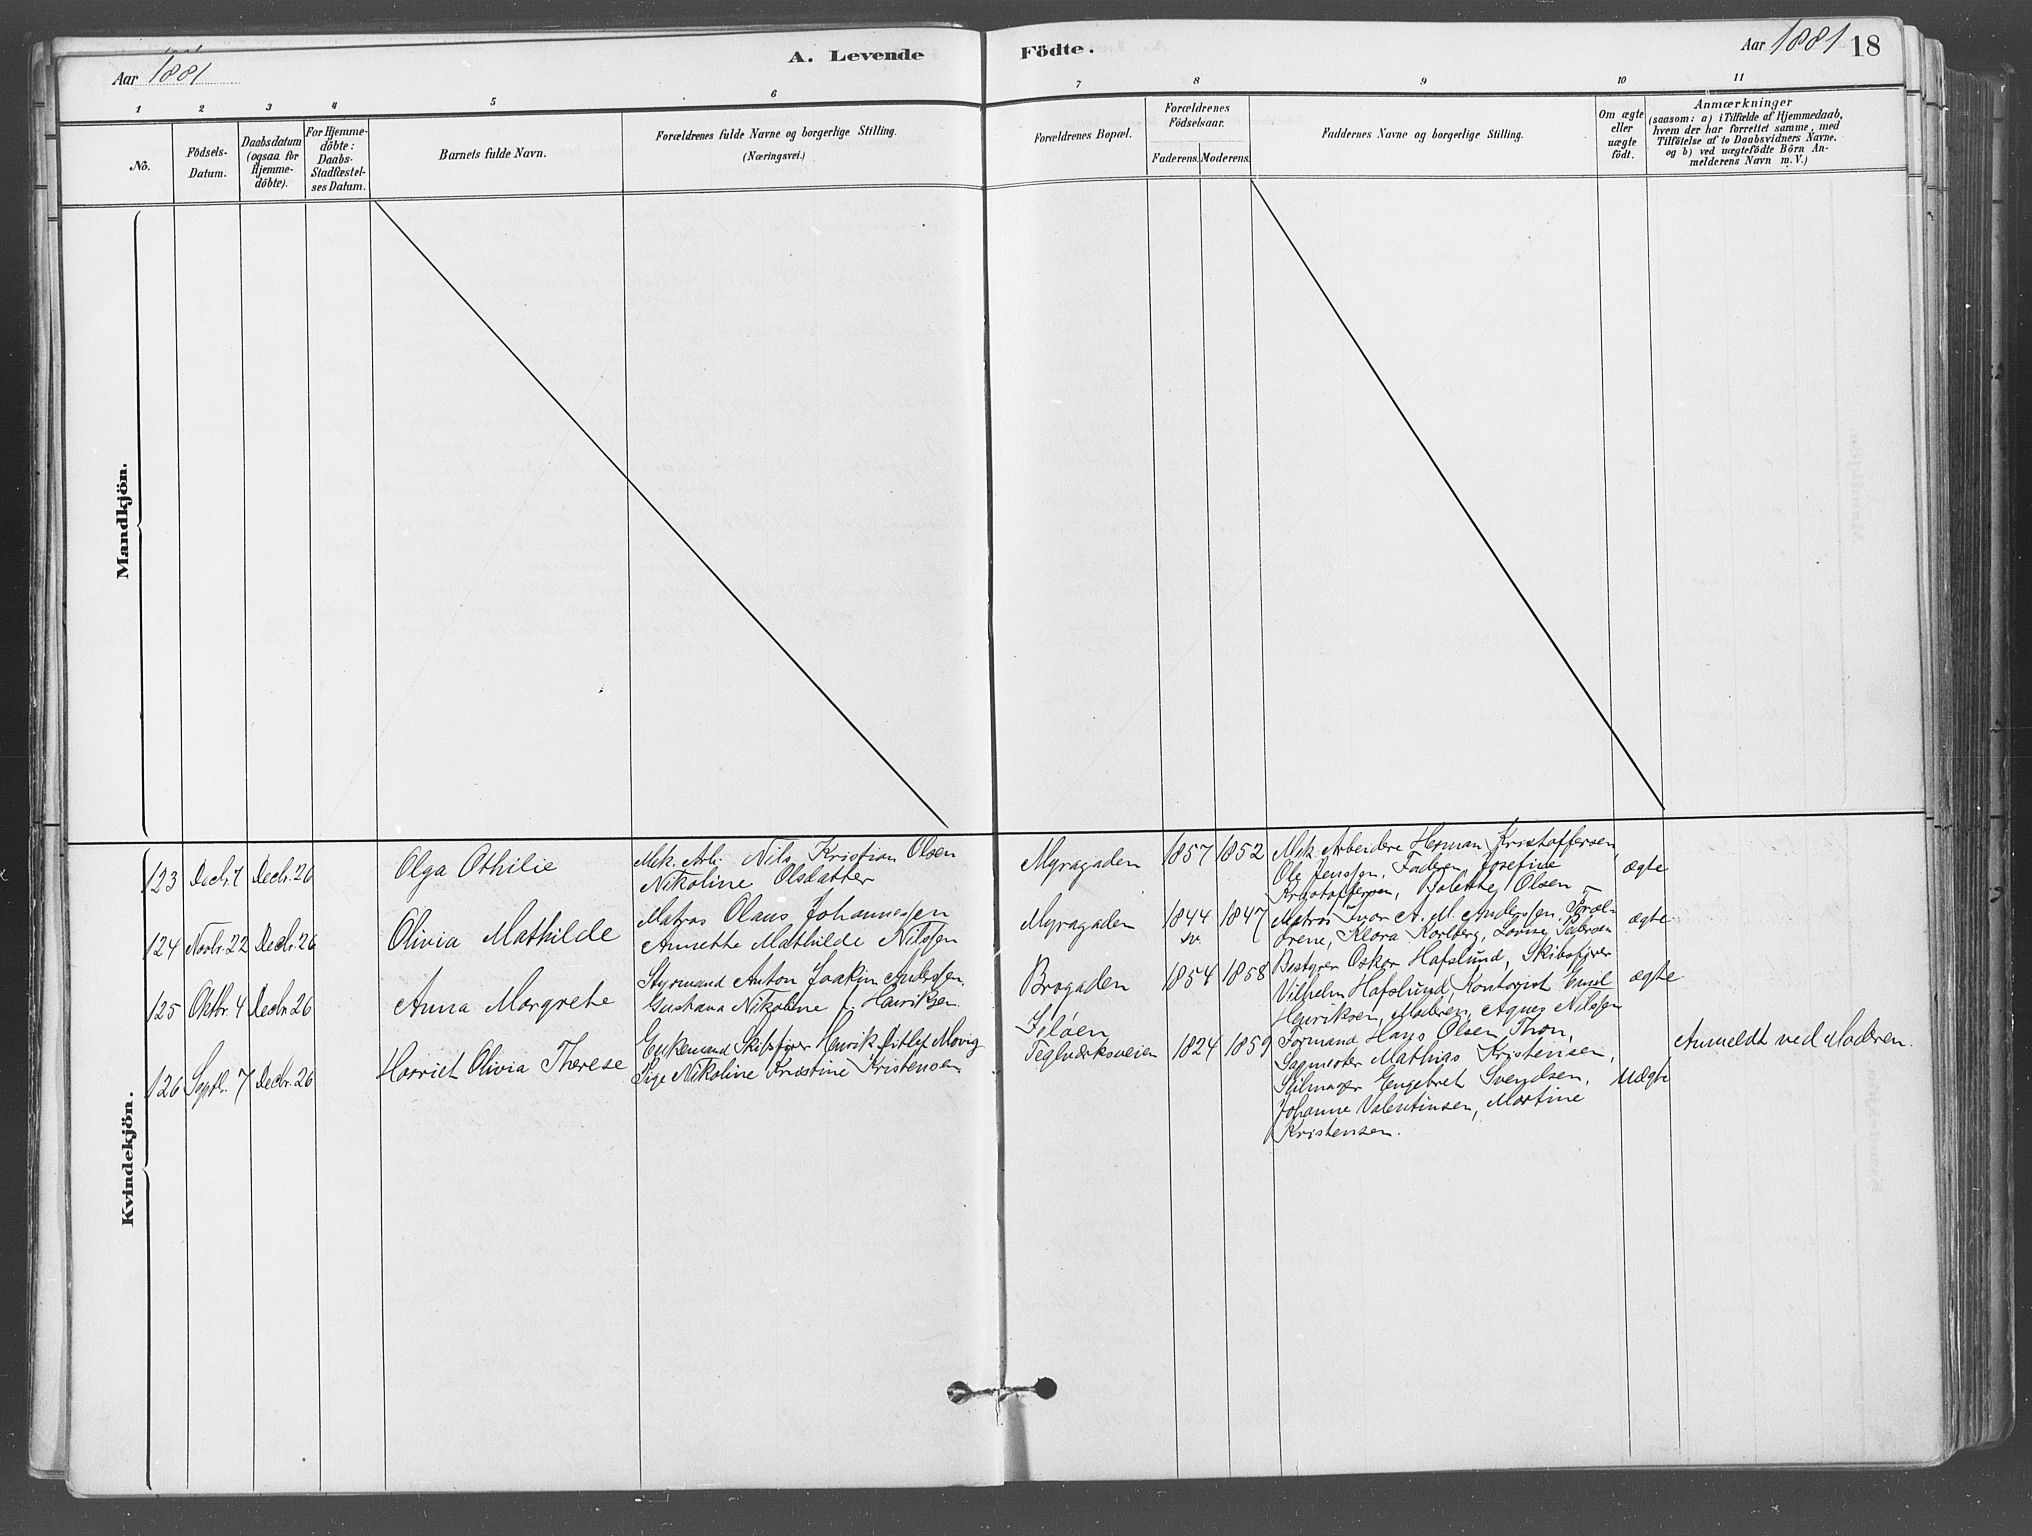 Aar 1881
A. Levende Födte.
Aar 1881 18
1 2 3 4 5 6 7 8 9 10 11
No.
Födsels-
Datum.
Daabsdatum
(ogsaa for
Hjemme-
döbte).
For Hjemme-
döbte:
Daabs-
Stadfæstel-
ses Datum.
Barnets fulde Navn.
Forældrenes fulde Navne og borgerlige Stilling.
(Næringsvei.)
Forældrenes Bopæl.
Forældrenes
Födselsaar.
Faderens. Moderens.
Faddernes Navne og borgerlige Stilling.
Om ægte
eller
uægte
födt.
Anmærkninger
(saasom: a) i Tilfælde af Hjemmedaab,
hvem der har forrettet samme, med
Tilföielse af to Daabsvidners Navne.
og b) ved uægtefödte Börn An-
melderens Navn m. V.)
Mandkjön.
Kvindekjön.
123 Decbr. 1 Decbr. 26
Olga Othilie
Mek. Arb. Nils Kristian Olsen
Nikoline Olsdatter
Myragaden
1857 1852
Mek. Arbeidere Herman Kristoffersen,
Ole Jenssen, Faderen, Josefine
Kristoffersen, Bolette Olsen
ægte
124 Novbr. 22 Decbr. 26
Olivia Mathilde
Matros Olaus Johannessen
Annette Mathilde Nilssen
Myragaden
1844 1847
sv.
Matros Ivar A. M. Anderssen,
Irene, Klara Karlberg, Lovise Pedersen
ægte
125 Oktbr. 4 Decbr. 26
Anna Margrethe
Styrmand Anton Joakim Anderssen
Gustava Nikoline f. Henriksen.
Brogaden
1854 1858
Bestyrer Oskar Hafslund, Skibsfører
Vilhelm Hafslund, Kontorist Emil
Henriksen, Moderen, Agnes Nilssen
ægte
126 Septbr. 7 Decbr. 26
Harriet Olivia Therese
Enkemand Skibsfører Henrik Ditlef Movig
Pige Nikoline Kristine Kristensen
Jeløen
Teglværksveien
1824 1859
Formand Hans Olsen Thon,
Sagmester Mathias Kristensen,
Seilmager Engebret Svendsen,
Johanne Valentinsen, Martine
Kristensen.
Uægte
Anmeldt ved Moderen.